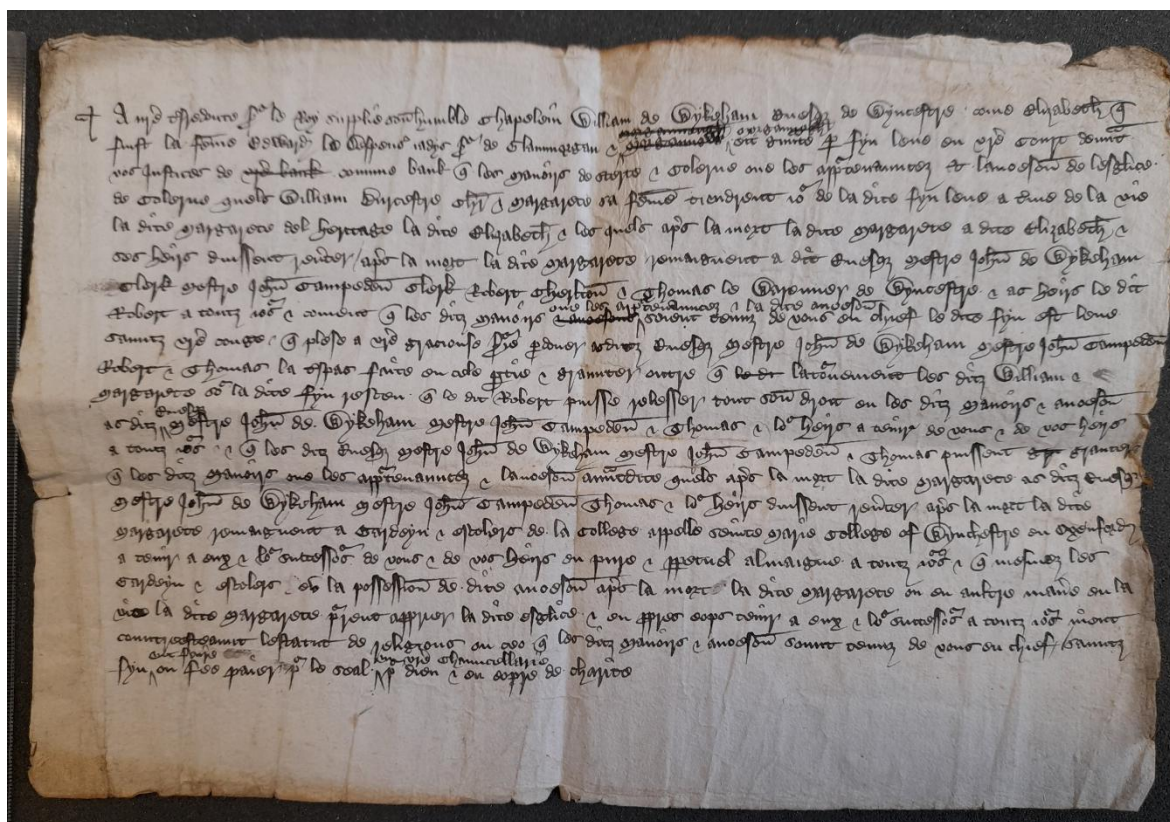 A nr̃e tresredoute sr̃ le Roy supplie son humble Chapelein William de Wykeham Evesq̃ de Wyncestre come Elizabeth q̃
fuist la feme Edward le Despens jadys sr̃ de Glammorgan & Morgannok eit g̃nte p fyn leve en vr̃e Court devant
vos Justices de comune bank q̃ les manoirs de Sterte & Colerne ove les app̃tenauntez & lavoeson de lesglise
de Colerne quels William Burcestre Chr̃ & Margarete sa feme tiendrent jo͛ de la dite fyn leve a t̃me de la vie
la dite Margarete del heritage la dite Elizabeth & les quels ap̃s la mort la dite Margarete a dite Elizabeth &
ses heirs duissent reṽter / ap̃s la mort la dite Margarete remaignent a dit Evesq̃ Mestre John de Wykeham
Clerk Mestre John Campeden Clerk Robert Cherlton & Thomas le Warenner de Wyncestre & as heirs le dit
Robert a toutz jo͛s & coment q̃ les ditz manoirs ove les app̃tenauntez & la dite avoeson soient tenuz de vous en chief le dite fyn est leve
sauntz vr̃e conge / q̃ plese a vr̃e graciouse sr̃ie p̃doner as ditz Evesq̃ Mestre John de Wykeham Mestre John Campeden
Robert & Thomas la t̃spas faite en cele p̃tie & graunter outre q̃ lattornement les ditz William &
Margarete so͛ la dite fyn resceu q̃ le dit Robert puisse relesser tout son droit en les ditz manoirs & avoeson
as ditz Evesq̃ Mestre John de Wykeham Mestre John Campeden & Thomas & lo͛ heirs a tenir de vous & de vos heirs
a toutz jo͛s & q̃ les ditz Evesq̃ Mestre John de Wykeham Mestre John Campeden & Thomas puissent graunter
q̃ les ditz manoirs ove les app̃tenauntez & lavoeson auantdite quels ap̃s la mort la dite Margarete as ditz Evesq̃
Mestre John de Wykeham Mestre John Campeden Thomas & lo͛ heirs duissent reṽter ap̃s la mort la dite
Margarete remaignent a Gardeyn & Escolers de la College appelle Seinte Marie College of Wynchestre en Oxenford
a tenir a eux & lo͛ successo͛s de vous & de vos heirs en pure & ppetuel almoigne a toutz jo͛s & q̃ mesmez les
Gardeyn & escolers en la possession de dite avoeson ap̃s la mort la dite Margarete ou en autre man̾e en la
vie la dite Margarete p̃rent apprier la dite esglise & en pp̃res oeps tenir a eux & lo͛ successo͛s a toutz jo͛s nient
countreesteaunt lestatut de religious ou ceo q̃ les ditz manoirs & avoeson sount tenuz de vous en chief / sauntz
fyn ent faire ou fee paier p̃ le seal en vr̃e Chauncellarie p dieu & en oepre de charite